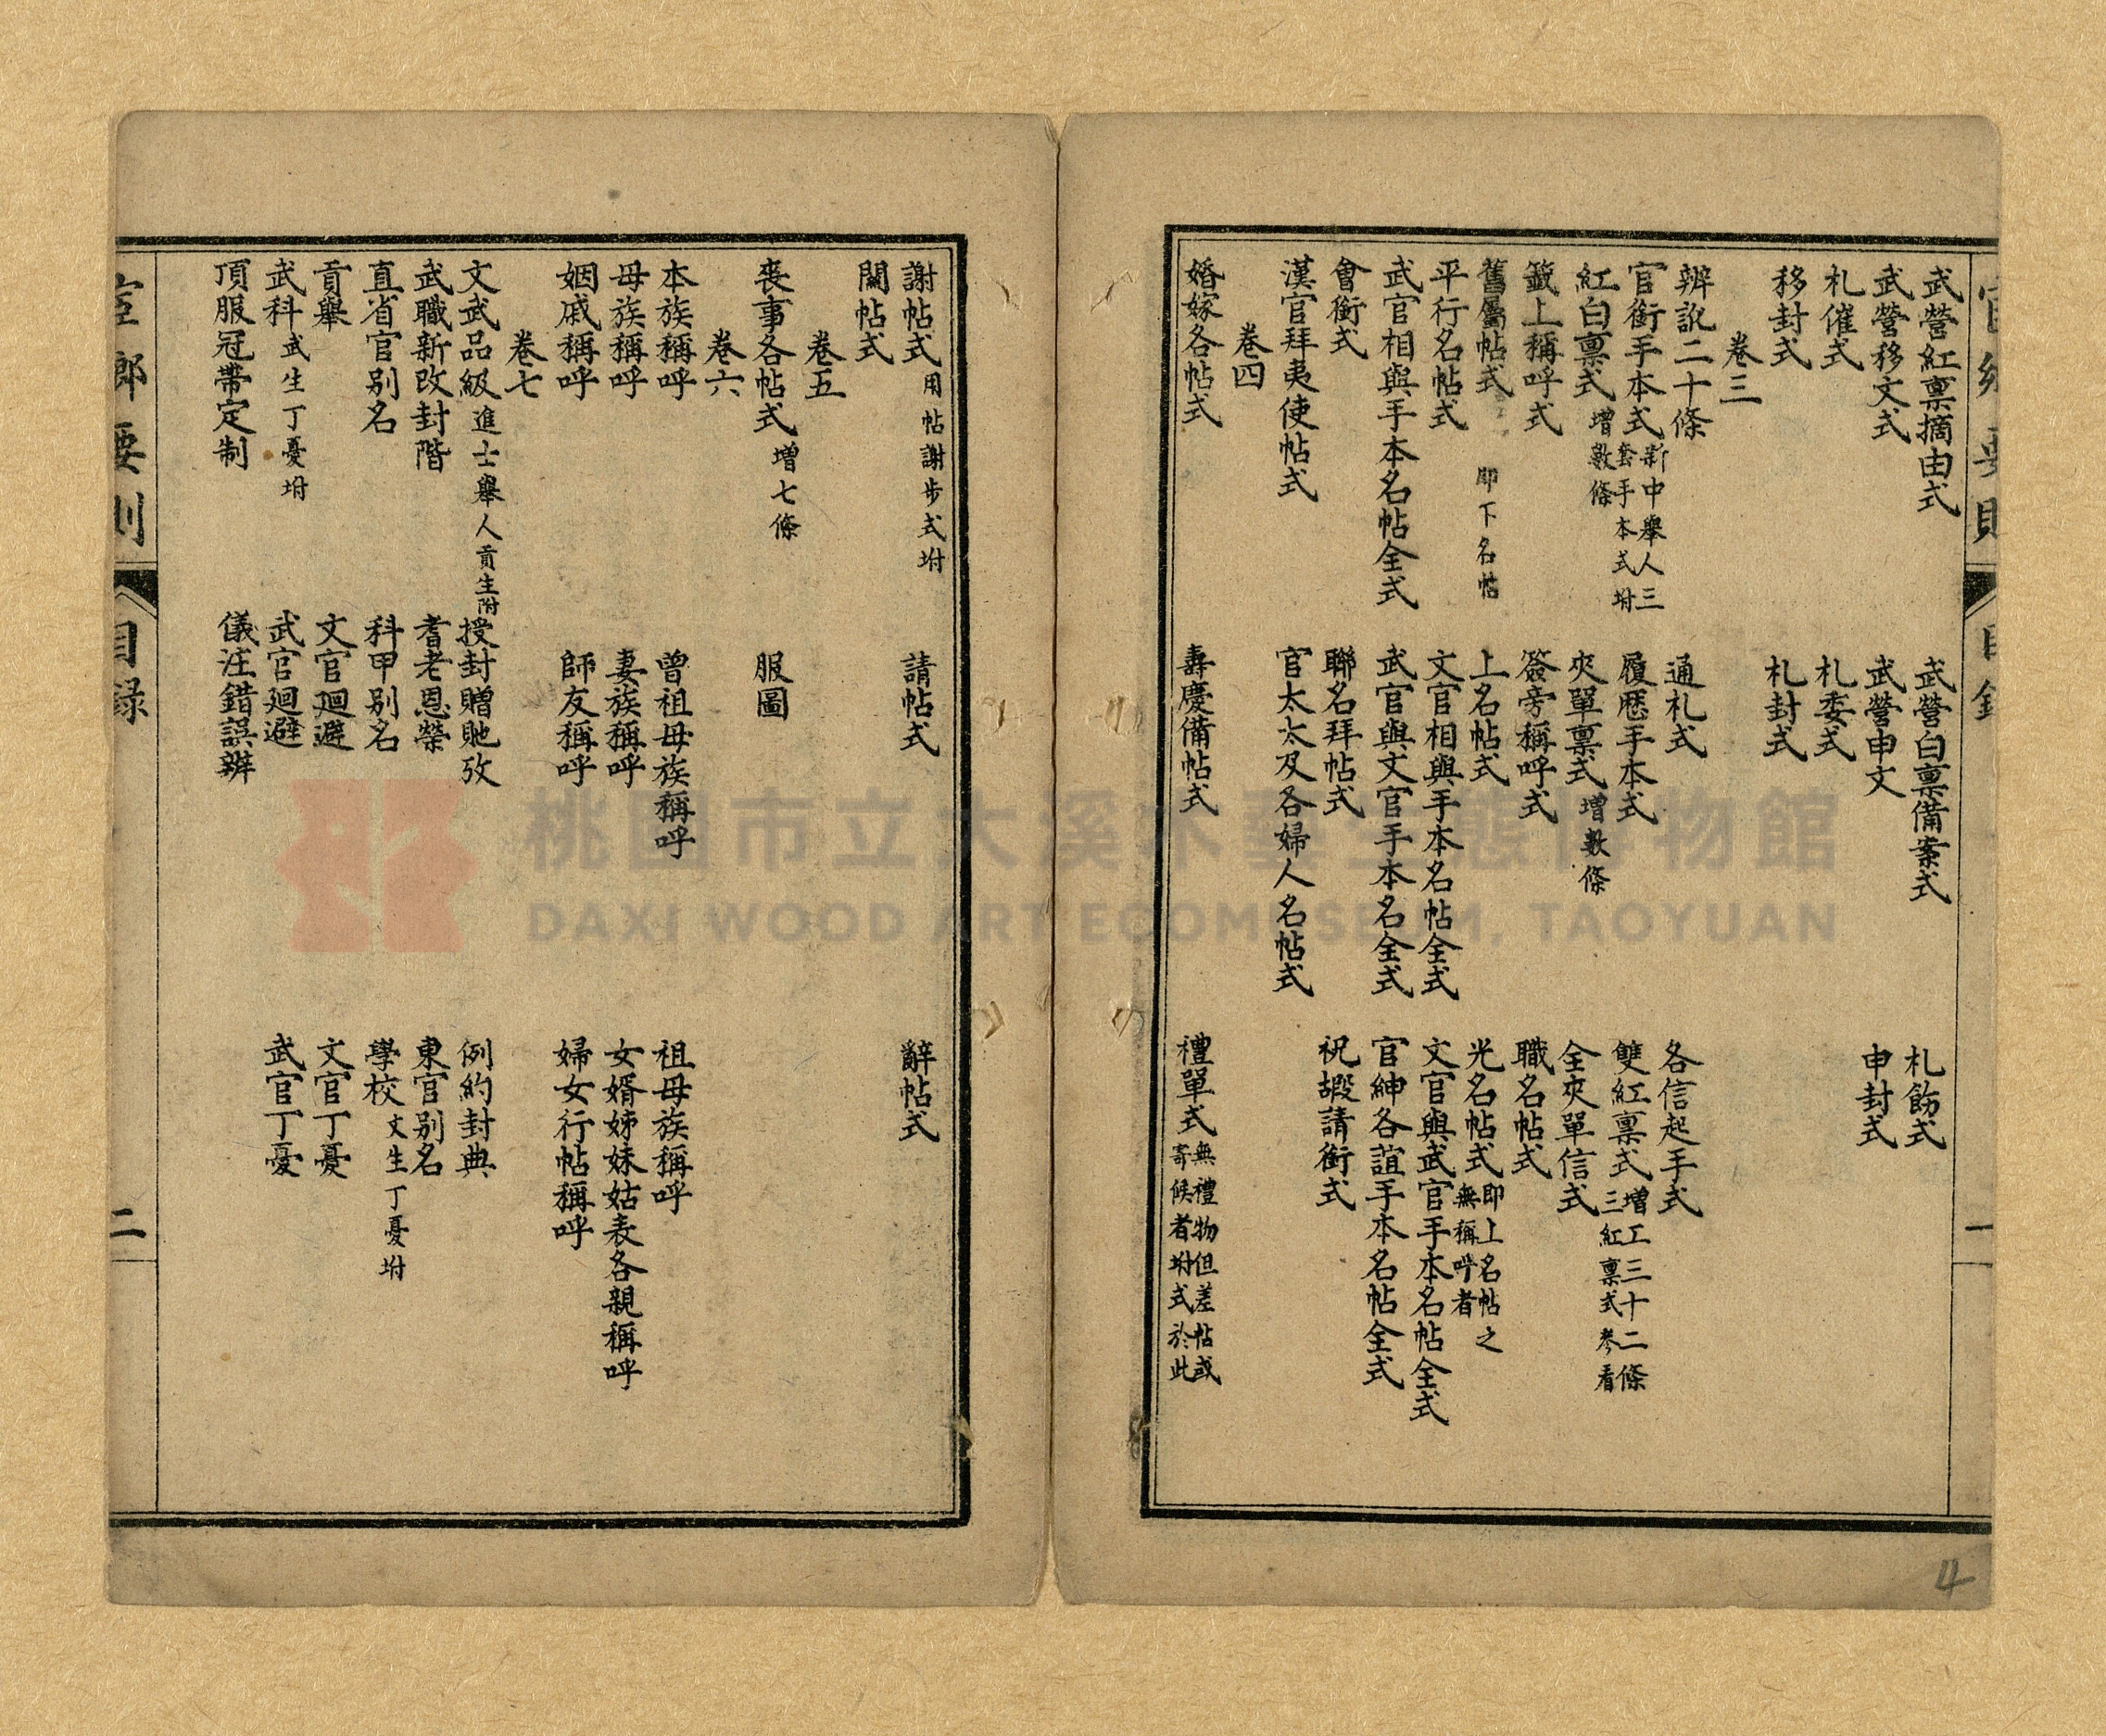 武營紅禀摘由式　武營白禀備案式　札飭式
武營移文式　武營申文　申封式
札催式　札委式
移封式　札封式
卷三
辨訛二十條　通札式　各信起手式
官銜手本式 新中舉人三套手本式坿　履歷手本式　雙紅禀式 增工三十二條三紅禀式參看
紅白禀式 增數條　夾單禀式 增數條　全夾單信式
籤上稱呼式　簽旁稱呼式　職名帖式
舊屬帖式 即下名帖　上名帖式　光名帖式 即上名帖之無稱呼者
平行名帖式　文官相與手本名帖全式　文官與武官手本名帖全式
武官相與手本名帖全式　武官與文官手本名全式　官紳各誼手本名帖全式
會銜式　聯名拜帖式　祝嘏請銜式
漢官拜夷使帖式　官太太及各婦人名帖式
卷四
婚嫁各帖式　壽慶備帖式　禮單式 無禮物但差帖或寄候者坿式於此
謝帖式 用帖謝步式坿　請帖式　辭帖式
闔帖式
卷五
喪事各帖式 增七條　服圖
卷六
本族稱呼　曾祖母族稱呼　祖母族稱呼
母族稱呼　妻族稱呼　女婿姊妹姑表各親稱呼
姻戚稱呼　師友稱呼　婦女行帖稱呼
卷七
文武品級 進士舉人貢生附　授封贈貤攷　例約封典
武職新改封階　耆老恩榮　東官别名
直省官别名　科甲别名　學校 文生丁憂坿
貢舉　文官迴避　文官丁憂
武科 武生丁憂坿　武官迴避　武官丁憂
頂服冠帶定制　儀注錯誤辨
官鄉要則　目録　二
官鄉要則　目錄　一
4
桃園市立大溪木藝生態博物館
DAXI WOOD ART ECOMUSEUM, TAOYUAN